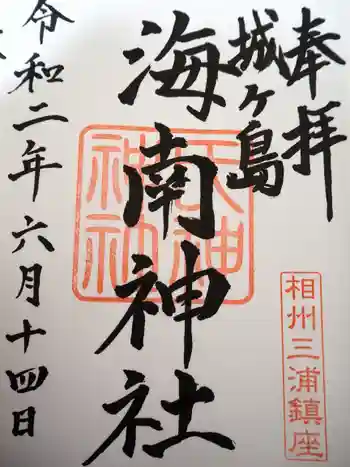 奉拝
城ヶ島
海南神社
令和二年六月十四日
相州三浦鎮座